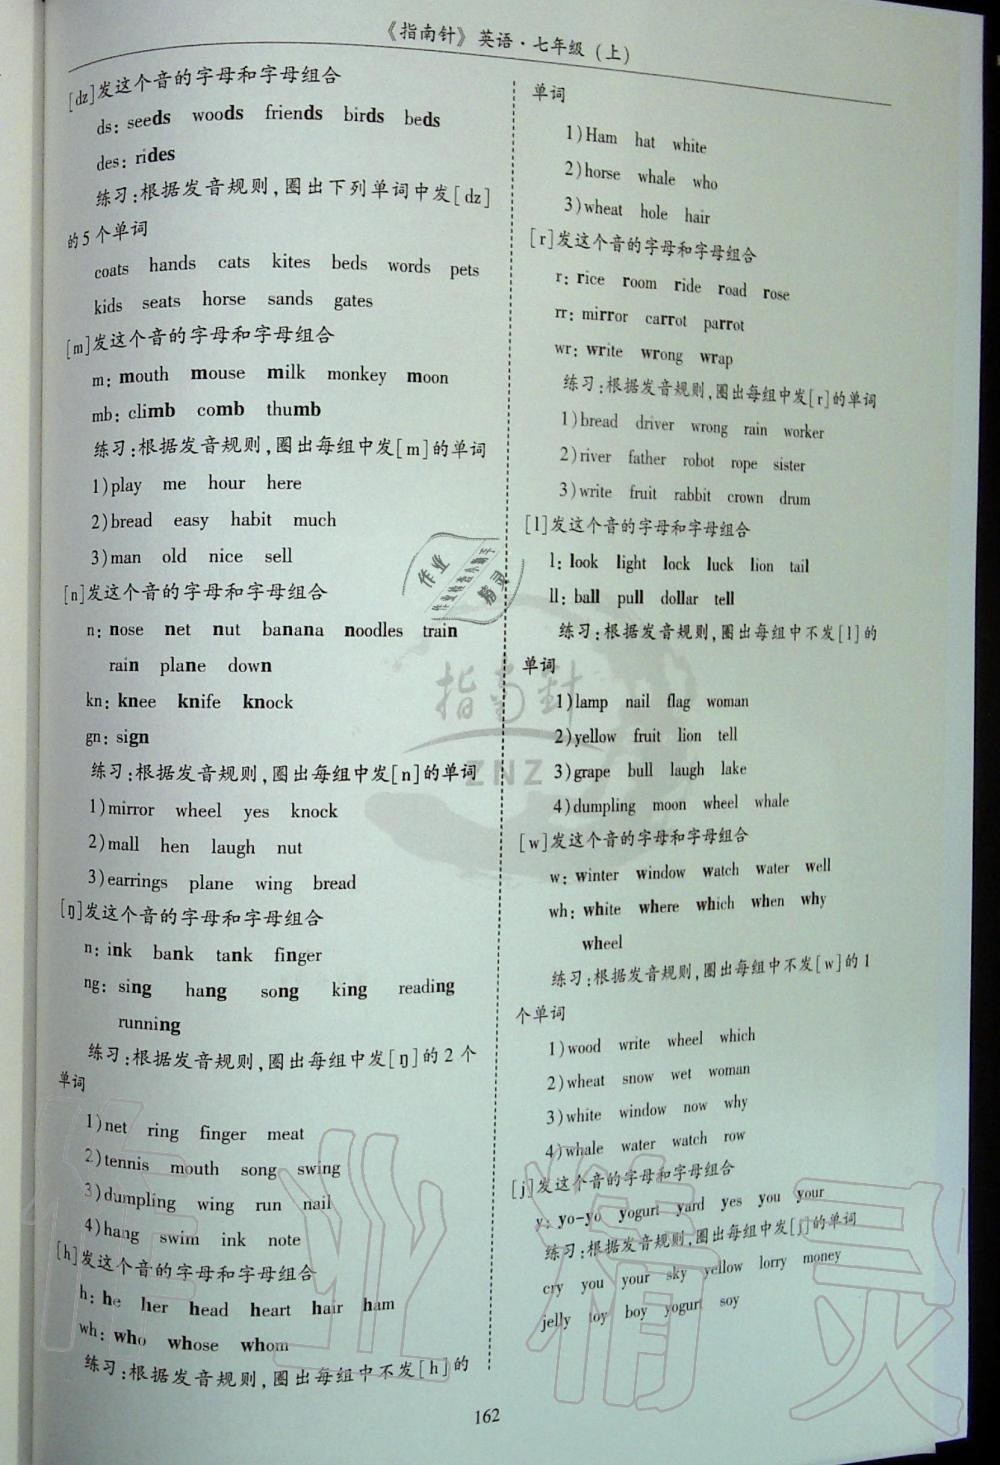 《指南针》英语·七年级(上)
[dz]发这个音的字母和字母组合
ds: seeds woods friends birds beds
des: rides
练习:根据发音规则,圈出下列单词中发[dz]
的5个单词
coats hands cats kites beds words pets
kids seats horse sands gates
[m]发这个音的字母和字母组合
m: mouth mouse milk monkey moon
mb: climb comb thumb
练习:根据发音规则,圈出每组中发[m]的单词
1)play me hour here
2)bread easy habit much
3)man old nice sell
[n]发这个音的字母和字母组合
n: nose net nut banana noodles train
rain plane down
kn: knee knife knock
gn: sign
练习:根据发音规则,圈出每组中发[n]的单词
1)mirror wheel yes knock
2)mall hen laugh nut
3)earrings plane wing bread
[ŋ]发这个音的字母和字母组合
n: ink bank tank finger
ng: sing hang song king reading
running
练习:根据发音规则,圈出每组中发[ŋ]的2个
单词
1)net ring finger meat
2)tennis mouth song swing
3)dumpling wing run nail
4)hang swim ink note
[h]发这个音的字母和字母组合
h: he her head heart hair ham
wh: who whose whom
练习:根据发音规则,圈出每组中不发[h]的
单词
1)Ham hat white
2)horse whale who
3)wheat hole hair
[r]发这个音的字母和字母组合
r: rice room ride road rose
rr: mirror carrot parrot
wr: write wrong wrap
练习:根据发音规则,圈出每组中发[r]的单词
1)bread driver wrong rain worker
2)river father robot rope sister
3)write fruit rabbit crown drum
[l]发这个音的字母和字母组合
l: look light lock luck lion tail
ll: ball pull dollar tell
练习:根据发音规则,圈出每组中不发[l]的
单词
1)lamp nail flag woman
2)yellow fruit lion tell
3)grape bull laugh lake
4)dumpling moon wheel whale
[w]发这个音的字母和字母组合
w: winter window watch water well
wh: white where which when why
wheel
练习:根据发音规则,圈出每组中不发[w]的1
个单词
1)wood write wheel which
2)wheat snow wet woman
3)white window now why
4)whale water watch row
[j]发这个音的字母和字母组合
y: yo-yo yogurt yard yes you your
练习:根据发音规则,圈出每组中发[j]的单词
cry you your sky yellow lorry money
jelly toy boy yogurt soy
162
作业
精灵
指南针
ZNZ
作业精灵